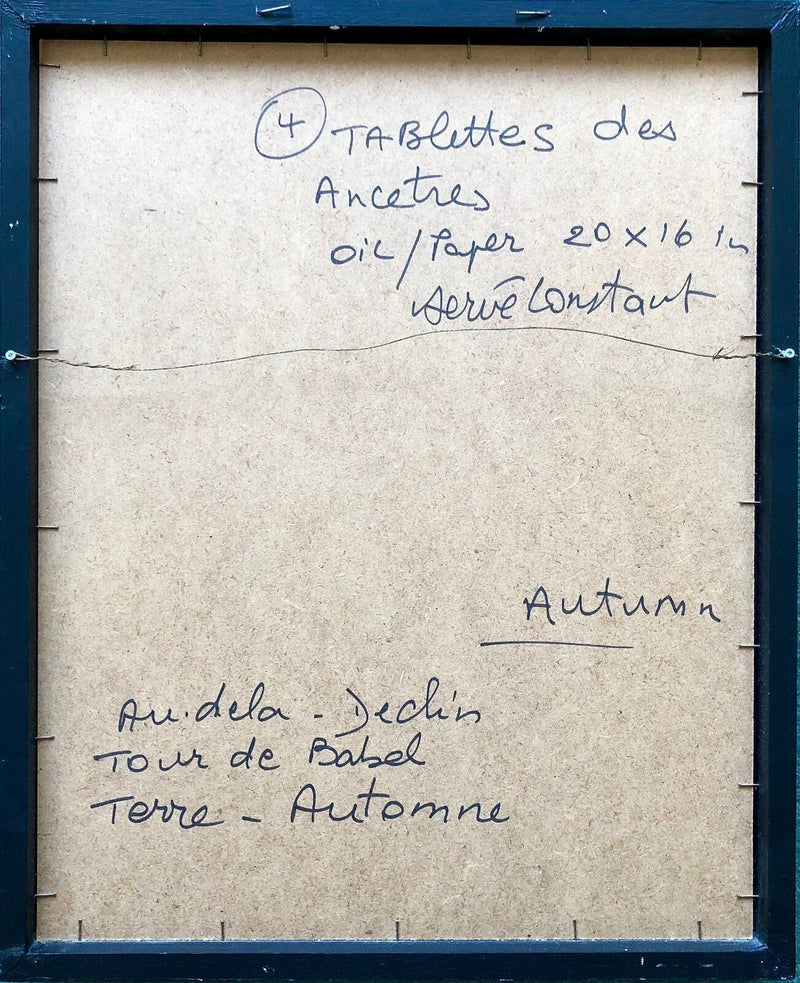 4 TABlettes des
Ancetres
oil/Paper 20 x 16 in
HervéConstant
Autumn
Au.dela - Declin
Tour de Babel
Terre - Automne